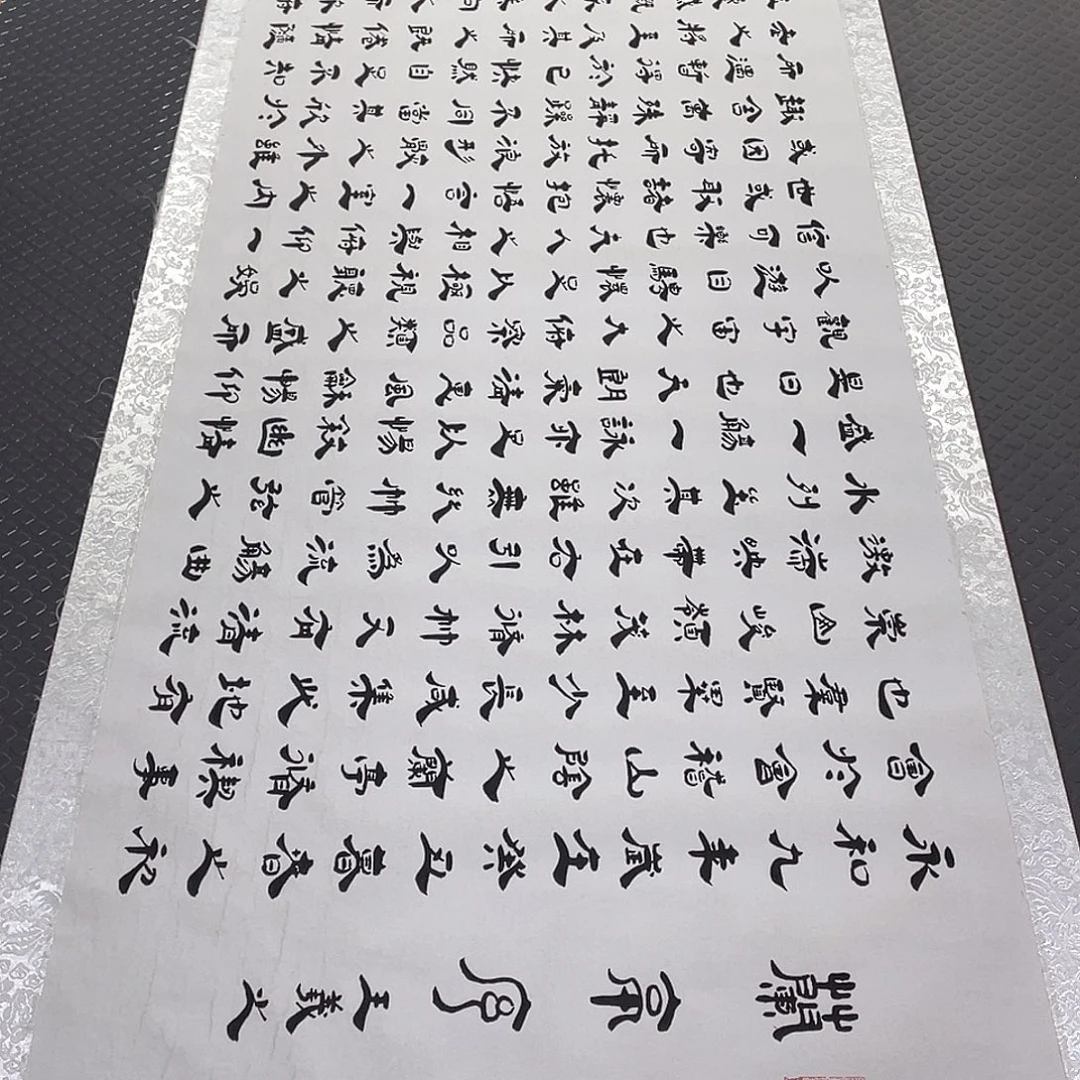 蘭亭序 王羲之
永和九年歲在癸丑暮春之初
會於會稽山陰之蘭亭脩禊事
也群賢畢至少長咸集此地有
崇山峻領茂林脩竹又有清流
激湍映帶左右引以為流觴曲
水列坐其次雖無絲竹管弦之
盛一觴一詠亦足以暢敘幽情
是日也天朗氣清惠風和暢仰
觀宇宙之大俯察品類之盛所
以遊目騁懷足以極視聽之娛
信可樂也夫人之相與俯仰一
世或取諸懷抱悟言一室之內
或因寄所託放浪形骸之外雖
趣舍萬殊靜躁不同當其欣於
所遇暫得於己快然自足不知
老之將至及其所之既倦情隨